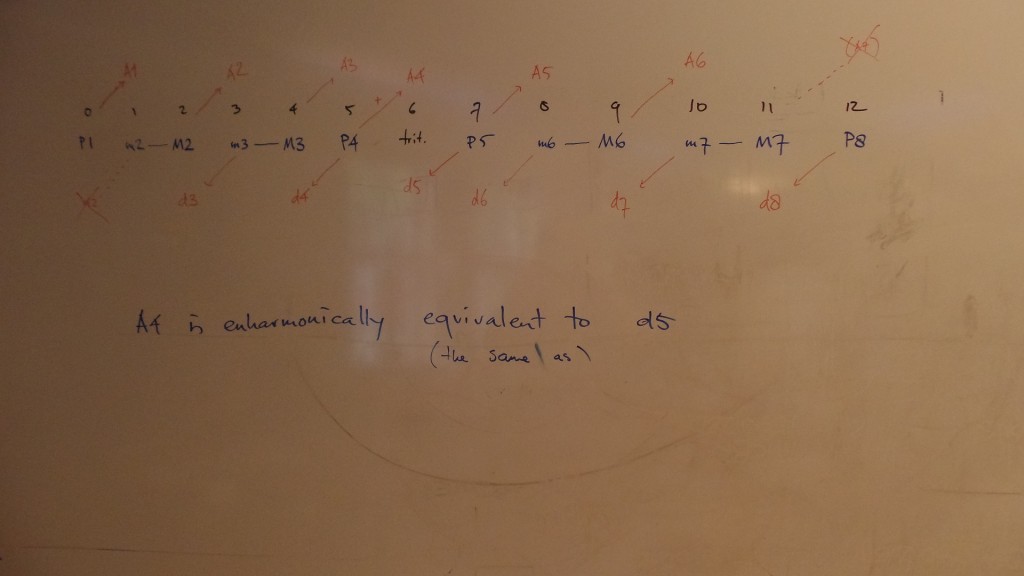 A1 A2 A3 A4 A5 A6
0 1 2 3 4 5 6 7 8 9 10 11 12
P1 m2 — M2 m3 — M3 P4 trit. P5 m6 — M6 m7 — M7 P8
d3 d4 d5 d6 d7 d8
A4 is enharmonically equivalent to d5
(the same as)